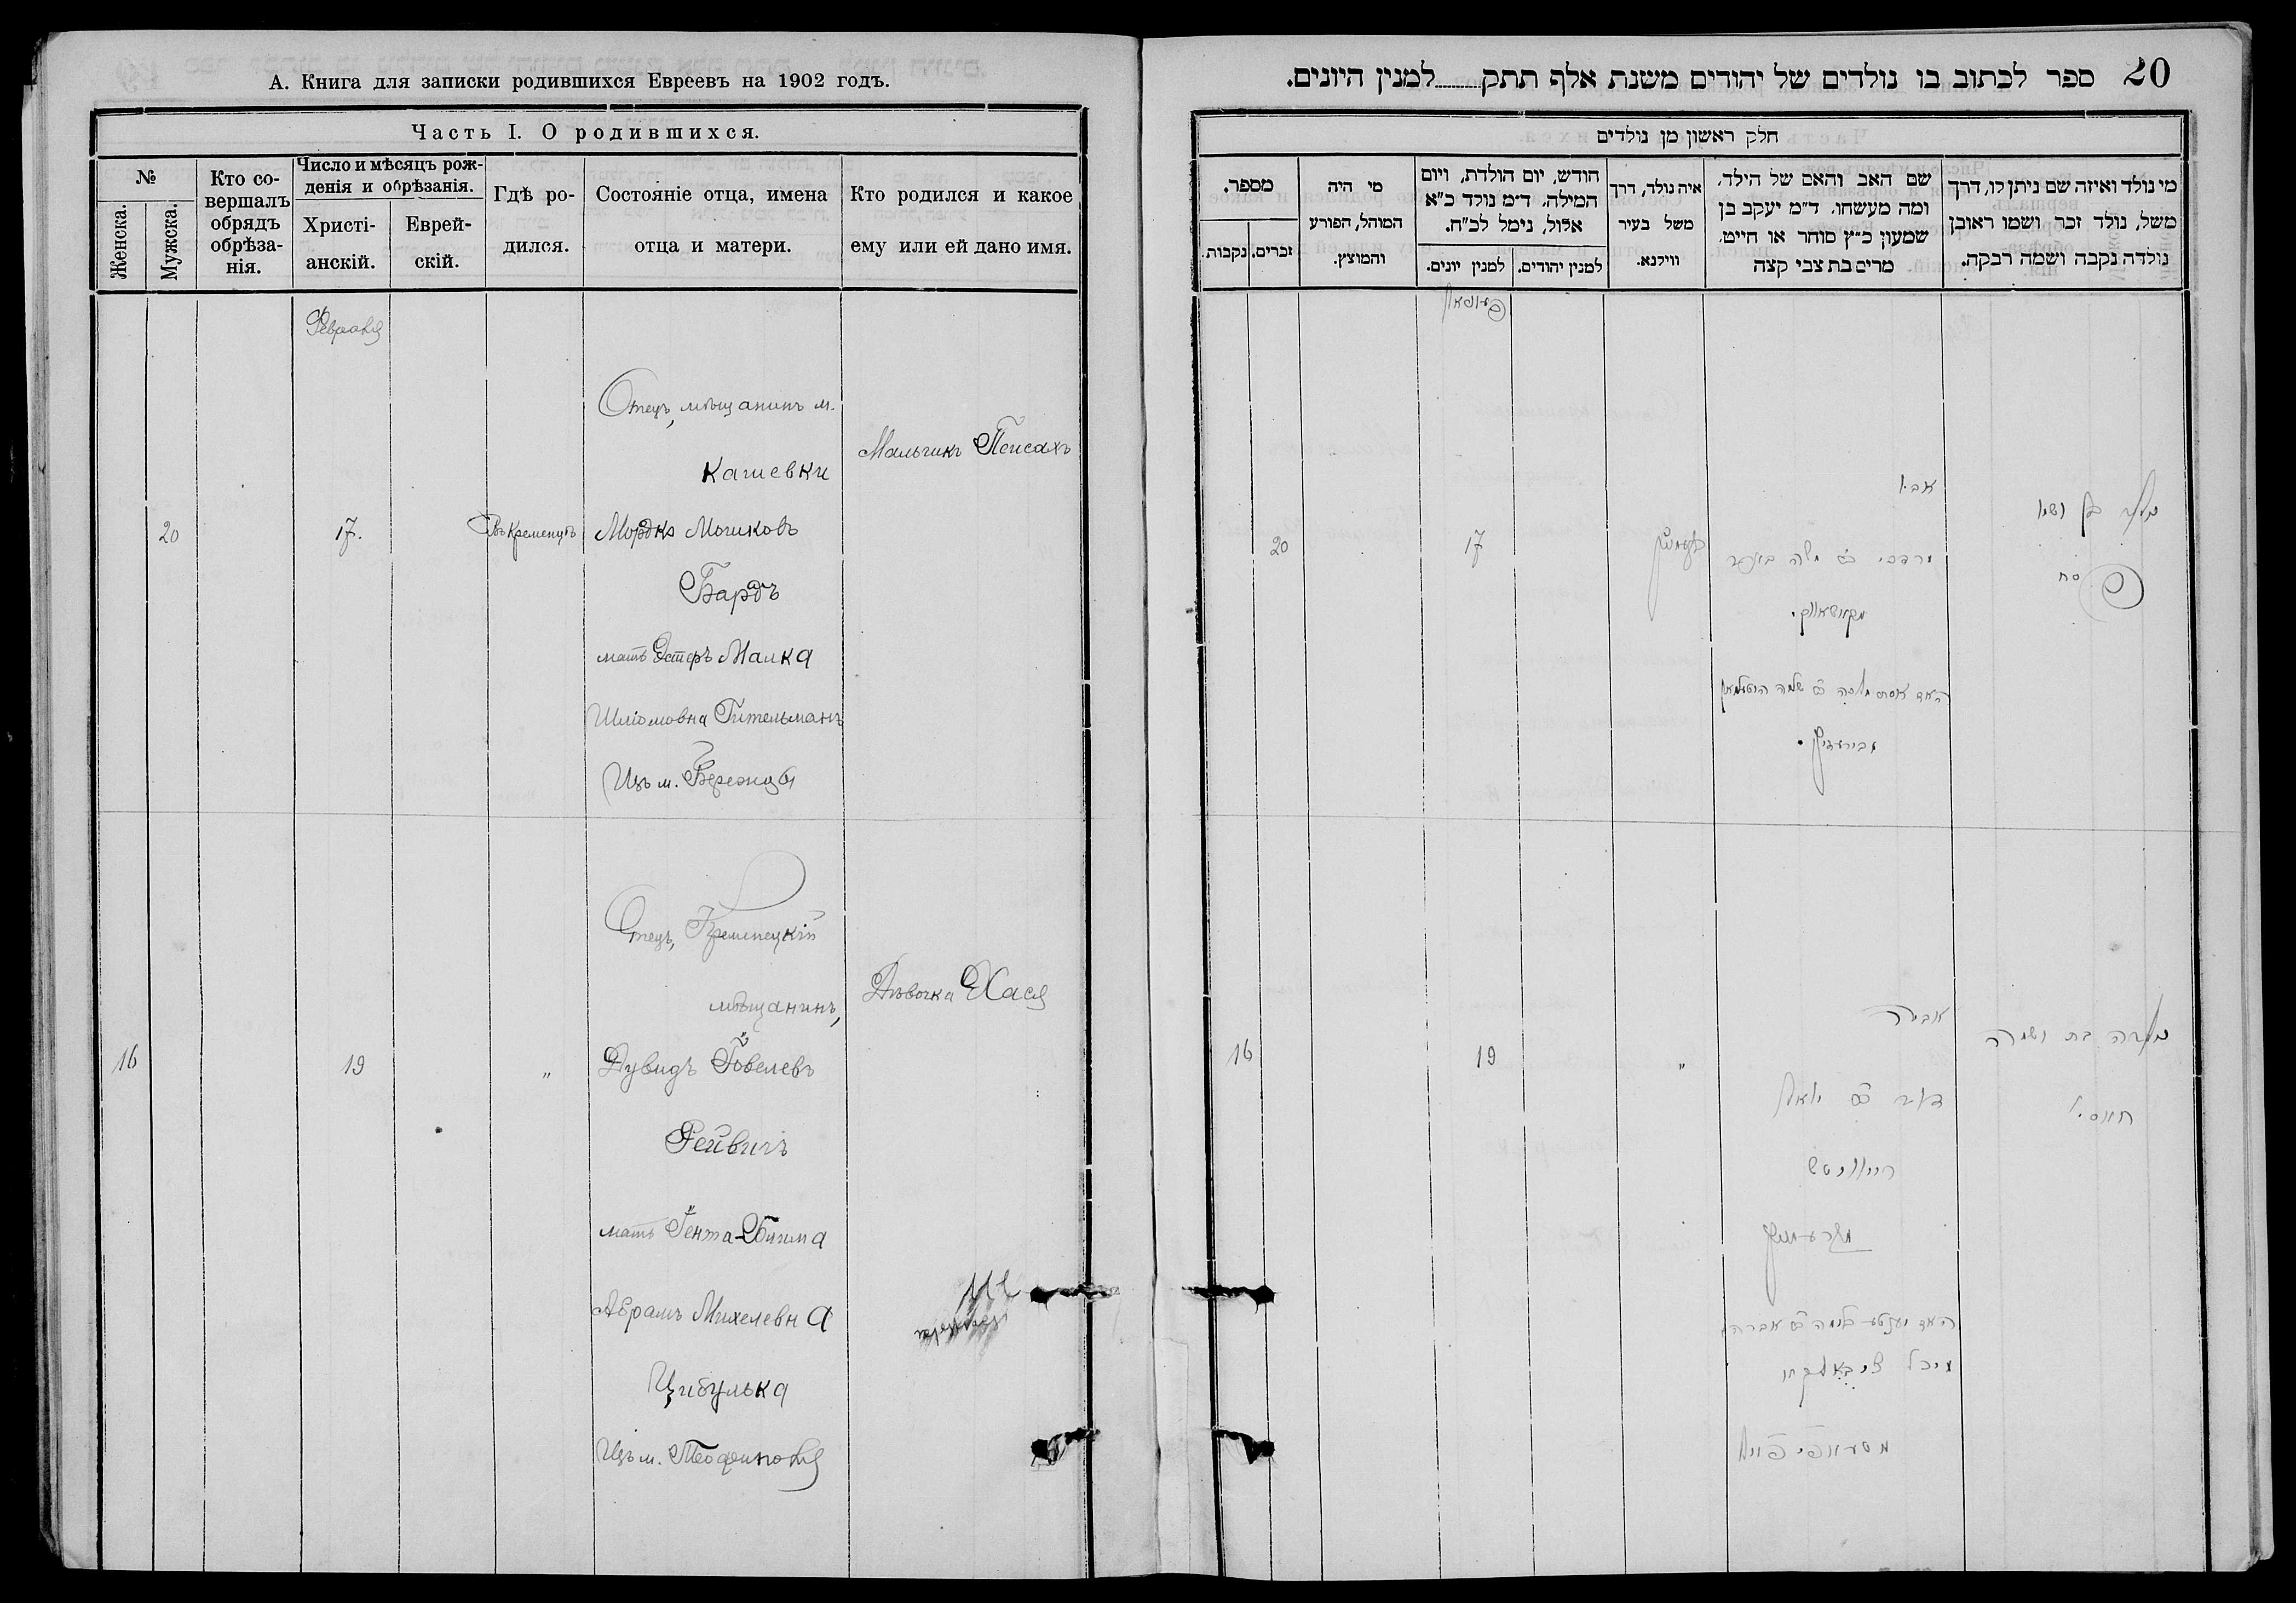 А. Книга для записки родившихся Евреевъ на 1902 годъ.
Часть I. О родившихся.
№
Женска.
Мужска.
Кто со-
вершалъ
обрядъ
обрѣза-
нія.
Число и мѣсяцъ рож-
денія и обрѣзанія.
Христі-
анскій.
Еврей-
скій.
Гдѣ ро-
дился.
Состояніе отца, имена
отца и матери.
Кто родился и какое
ему или ей дано имя.
Февраля
Отецъ, мѣщанинъ м.
Мальчикъ Пейсахъ
Катевки
20 17. Въ Кременцѣ Мордко Мошковъ
Бардъ
мать Эстеръ Малка
Шліомовна Гительманъ
Изъ м. Бережцы
Отецъ, Кременецкій
Дѣвочка Хася
мѣщанинъ,
16 19 " Дувидъ Іовелевъ
Рейвичъ
мать Іента-Блима
Абрамъ Михелевна
Цибулька
Изъ м. Теофиполя
20
ספר לכתוב בו נולדים של יהודים משנת אלף תתק......למנין היונים.
חלק ראשון מן נולדים
מי נולד ואיזה שם ניתן לו, דרך
משל, נולד זכר ושמו ראובן
נולדה נקבה ושמה רבקה.
שם האב והאם של הילד,
ומה מעשהו. ד״מ יעקב בן
שמעון כ״ץ סוחר או חייט,
מרים בת צבי קצה
איה נולד, דרך
משל בעיר
ווילנא.
חודש, יום הולדת, ויום
המילה, ד״מ נולד כ״א
אלול, נימל לכ״ח.
למנין יהודים.
למנין יונים.
מי היה
המוהל, הפורע
והמוצץ.
מספר.
זכרים.
נקבות.
אביו
נולד בן ושמו
פסח
מרדכי
משה
17
20
האם אסתר מלכה
שלמה
אביה
נולדה בת ושמה
"
19
16
דוד
יואל
חאסי
האם יענטע בלימה
אברהם
מיכל